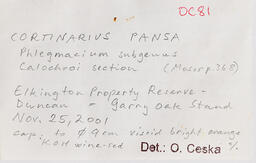 OC81
CORTINARIUS PANSA
Phlegmacium subgenus
Calochroi section (Moser p.368)
Elkington Property Reserve -
Duncan - Garry Oak Stand
Nov. 25, 2001
cap to Ø 9cm viscid bright orange
KOH wine-red
Det.: O. Ceska